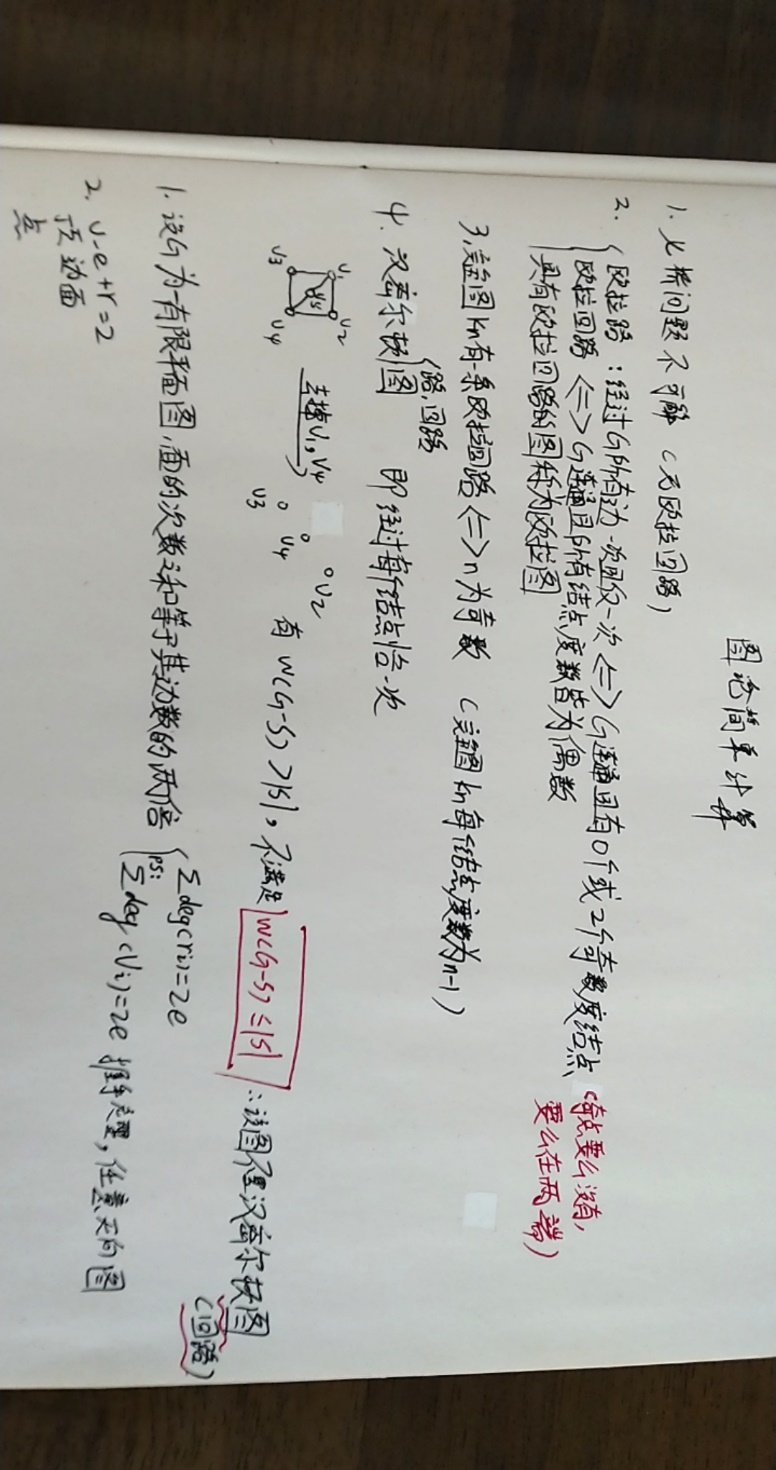 图论简单计算
1. 七桥问题不可解 (无欧拉回路)
2. { 欧拉路：经过G所有边一次且仅一次 <=> G连通且有0个或2个奇数度结点 (奇点要么没有,
要么在两端)
欧拉回路 <=> G连通且所有结点度数皆为偶数
具有欧拉回路的图称为欧拉图
3. 完全图Kn有一条欧拉回路 <=> n为奇数 (完全图Kn每个结点度数为n-1)
{路,回路
4. 汉密尔顿图 即经过每个结点恰一次
V1 V2 V3 V4 V5
去掉V1,V4
V3 V4 V2
有 W(G-S) > |S|, 不满足 W(G-S) ≤ |S| ∴该图不是汉密尔顿图
(回路)
1. 设G为一有限平面图,面的次数之和等于其边数的两倍 { Σdeg(ri)=2e
ps: Σdeg(Vi)=2e 握手定理, 任意无向图
2. v-e+r=2
顶 边 面
点